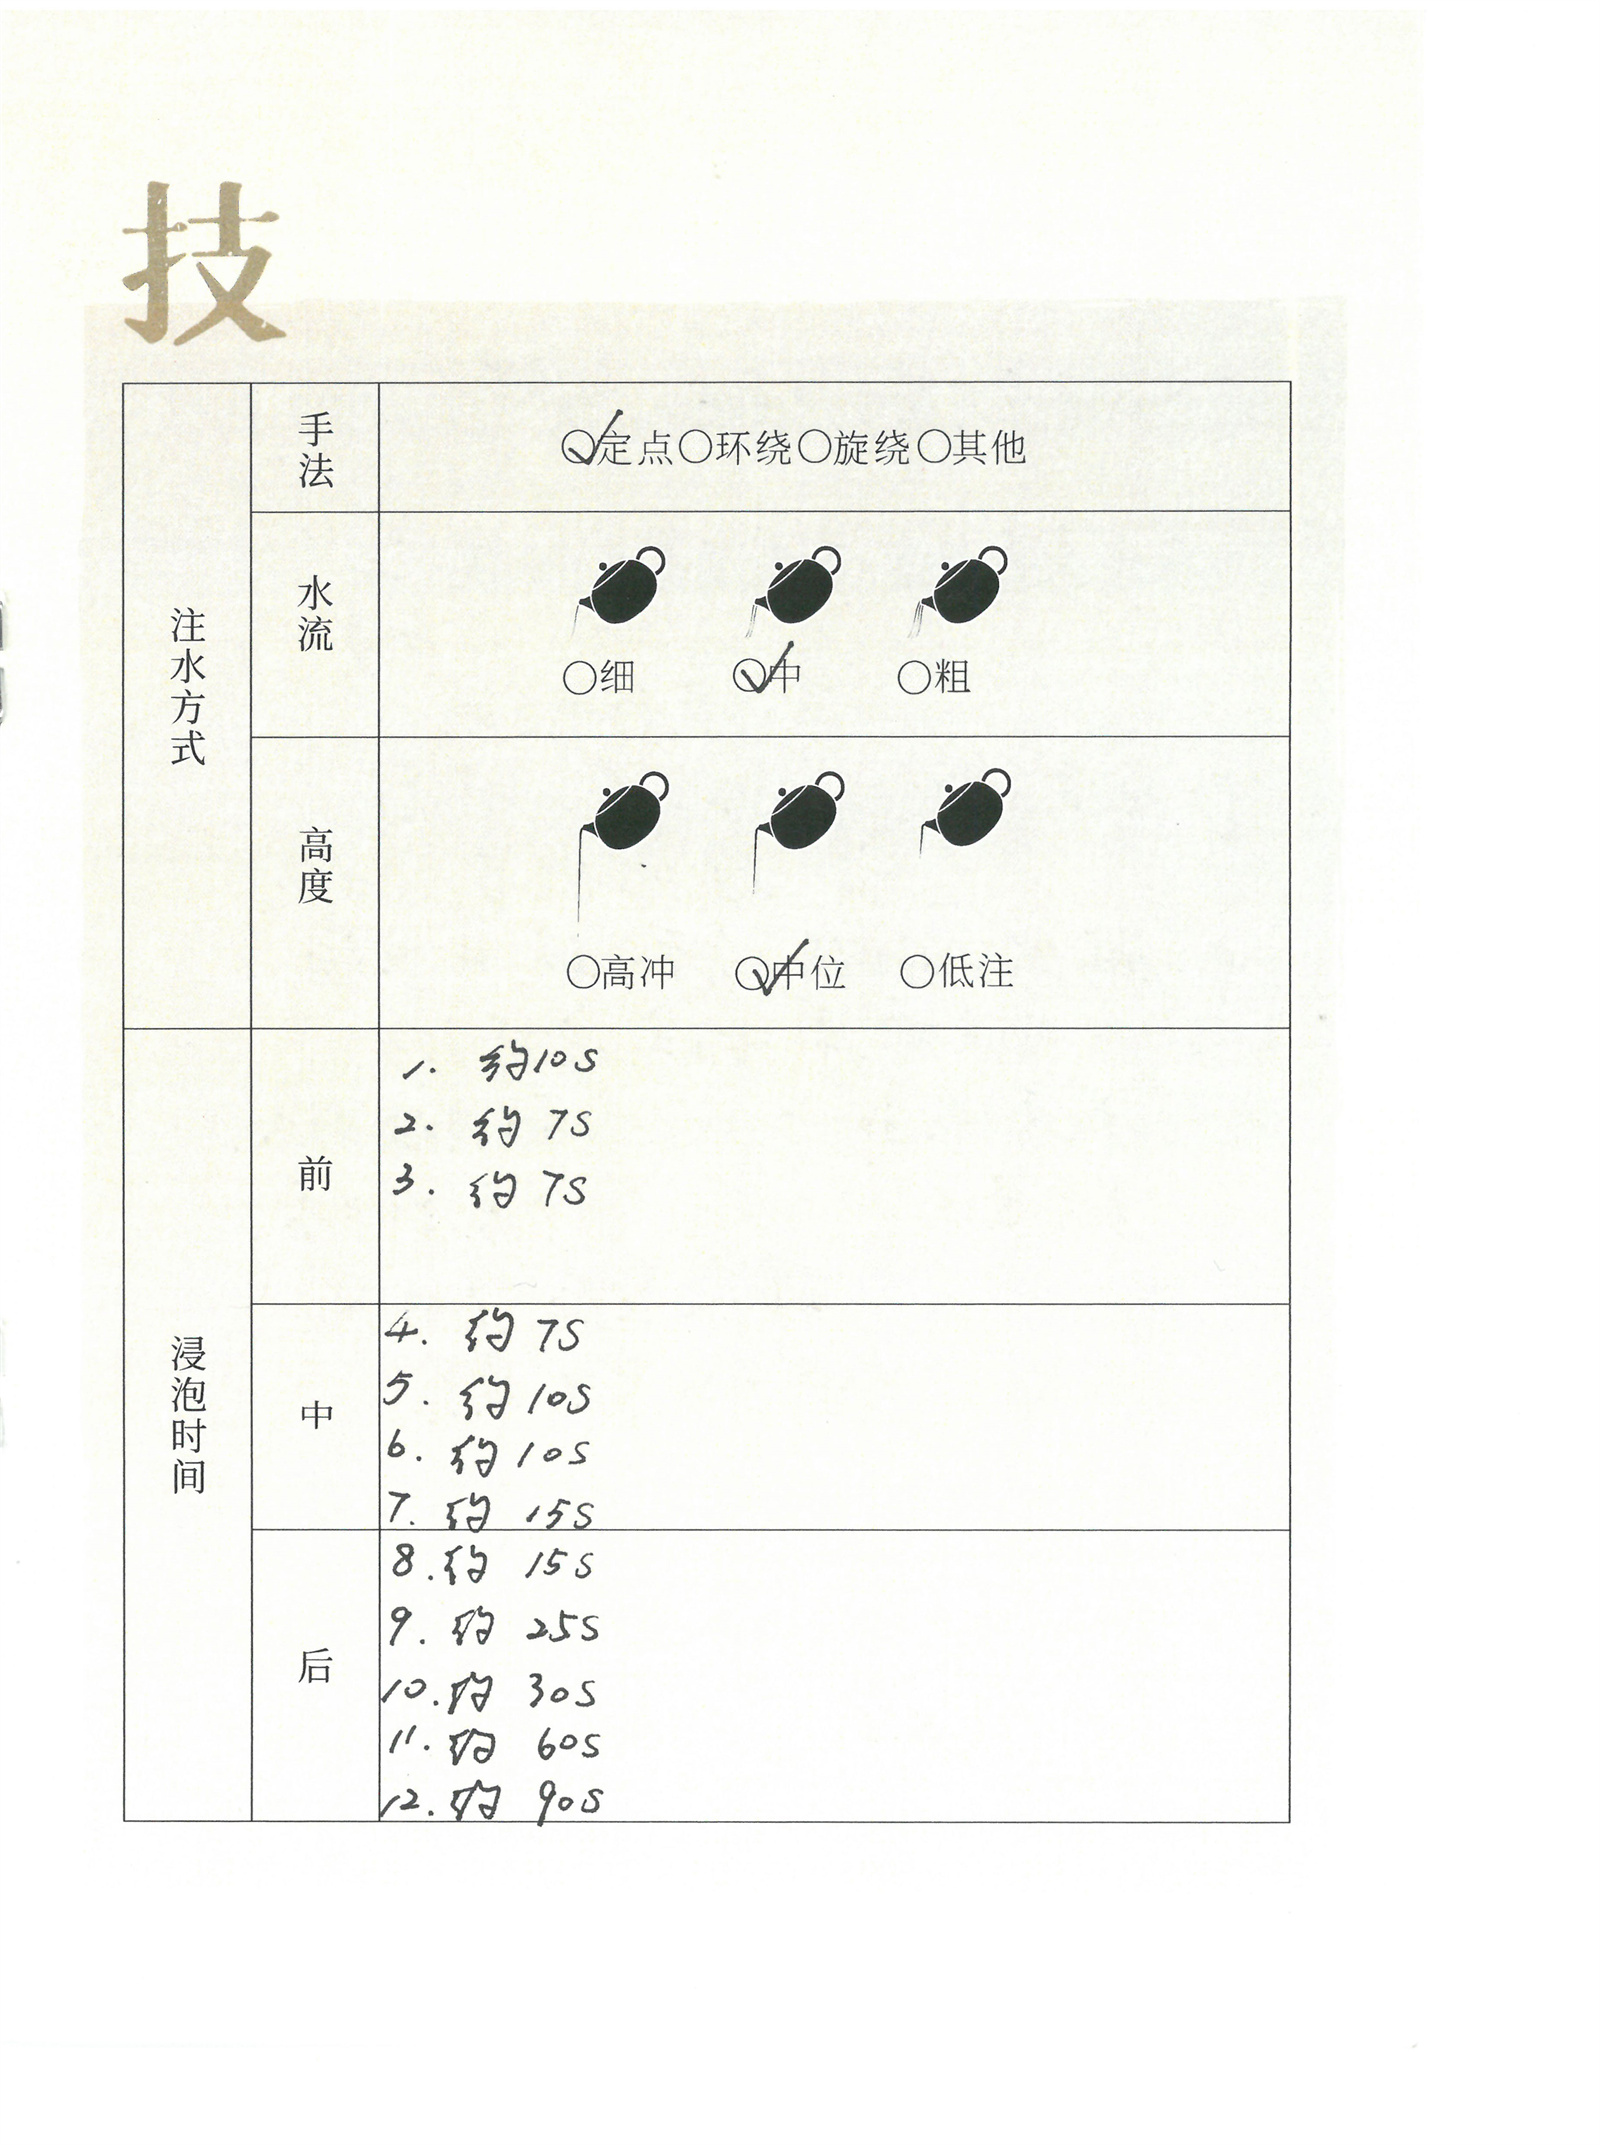 技
注水方式
手法
○定点○环绕○旋绕○其他
水流
○细 ○中 ○粗
高度
○高冲 ○中位 ○低注
浸泡时间
前
1. 约10S
2. 约 7S
3. 约 7S
中
4. 约 7S
5. 约 10S
6. 约 10S
7. 约 15S
后
8. 约 15S
9. 约 25S
10. 约 30S
11. 约 60S
12. 约 90S